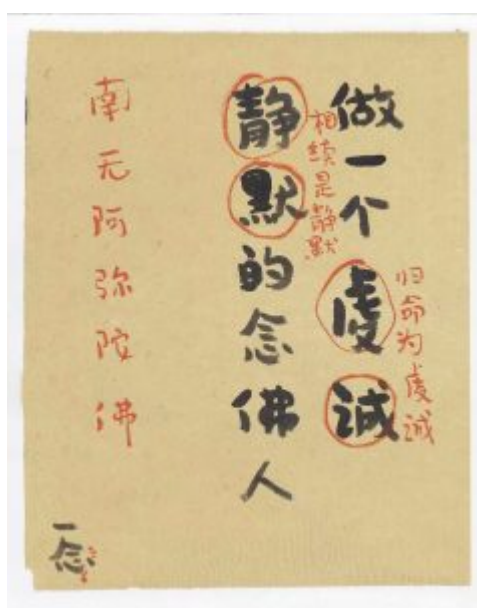 做一个虔诚
归命为虔诚
静默的念佛人
相续是静默
南无阿弥陀佛
一念